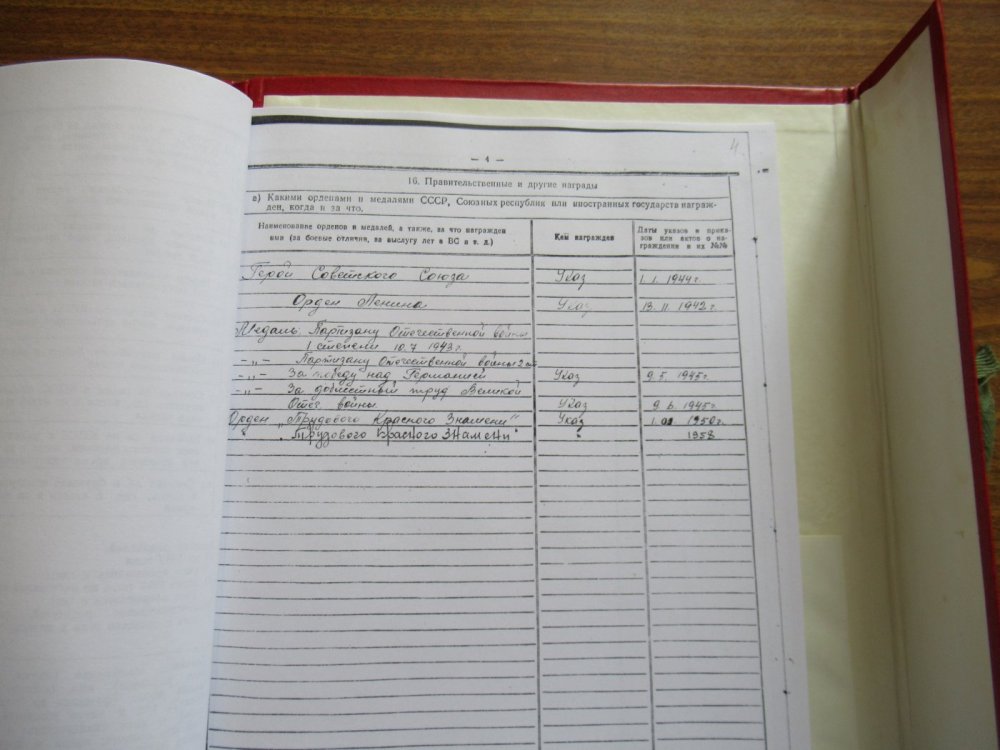 4
— 4 —
16. Правительственные и другие награды
а) Какими орденами и медалями СССР, Союзных республик или иностранных государств награж-
ден, когда и за что.
Наименование орденов и медалей, а также, за что награжден
ими (за боевые отличия, за выслугу лет в ВС и т. д.)
Кем награжден
Даты указов и прика-
зов или актов о на-
граждении и их №№
Герой Советского Союза Указ 1. 1. 1944г.
Орден Ленина Указ 13. 11 1942г.
Медаль Партизану Отечественной войны
1 степени 10.7 1943г.
—„— Партизану Отечественной войны 2 ст
—„— За победу над Германией Указ 9. 5. 1945г.
—„— За доблестный труд Великой
Отеч. войны Указ 9. 6. 1945г.
Орден „Трудового Красного Знамени" Указ 1. 1950г.
" „Трудового Красного Знамени" " 1958